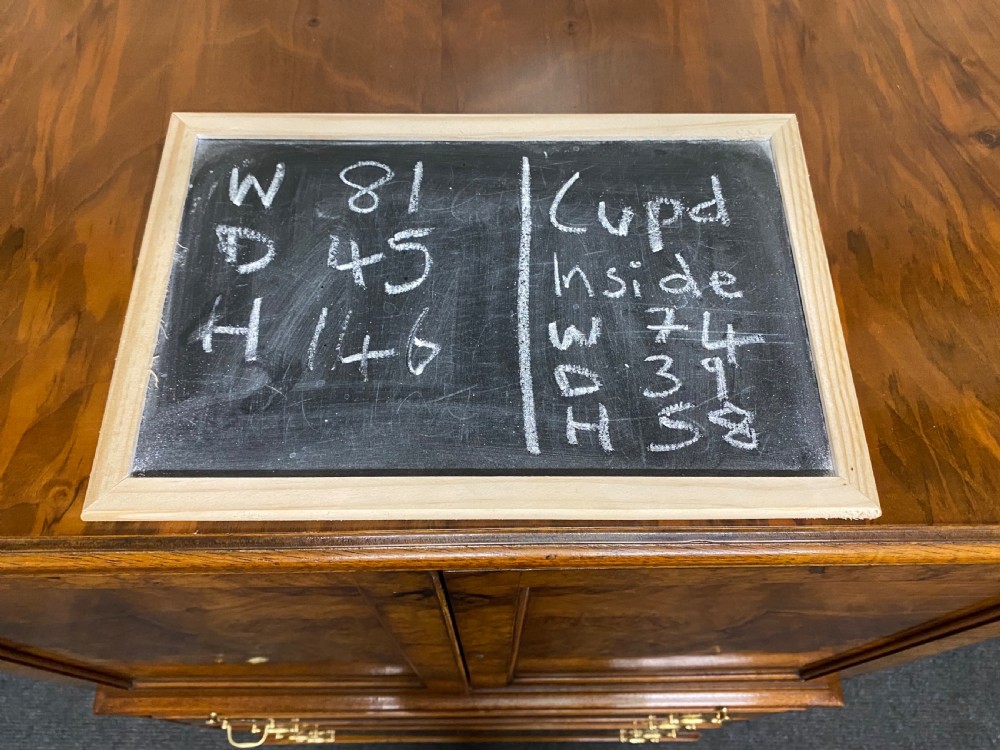 W 81
D 45
H 146
Cupd
Inside
W 74
D 39
H 58